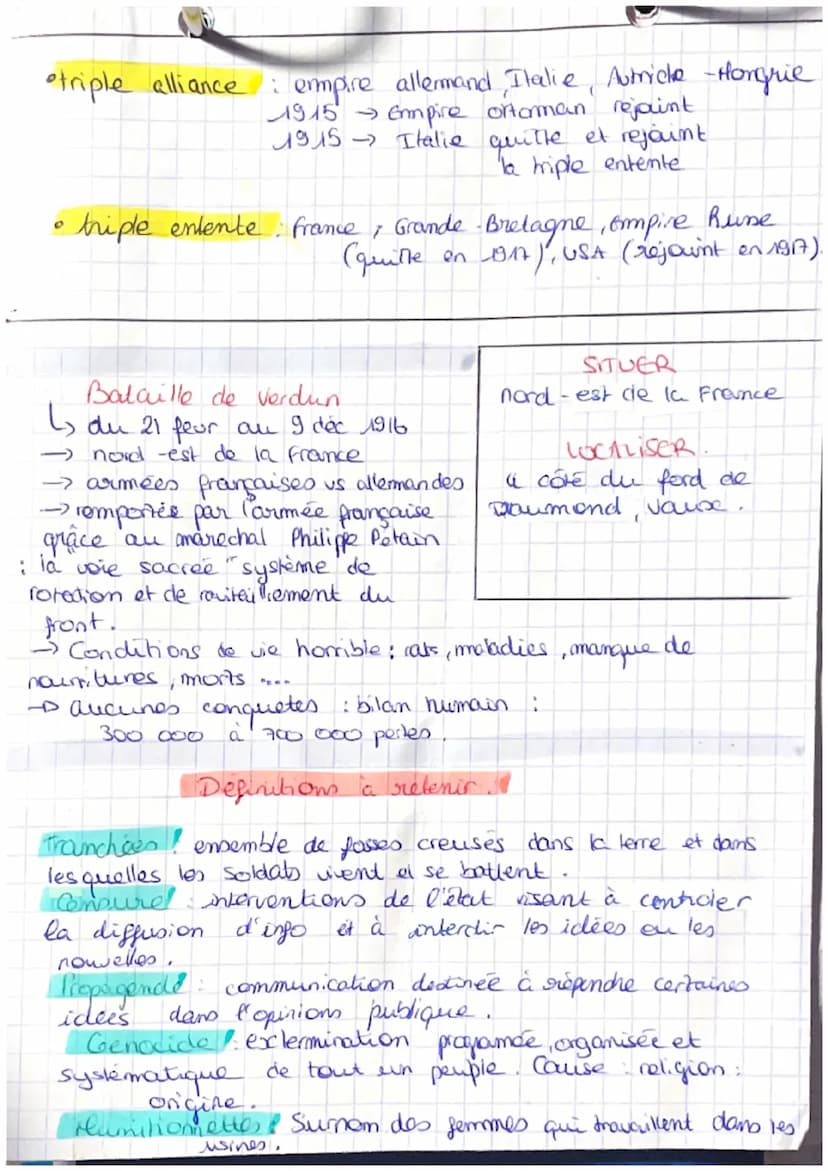 • triple alliance : empire allemand, Italie, Autriche-Hongrie
1915 → Empire ottoman rejoint
1915 → Italie quitte et rejoint
la triple entente
• triple entente : france, Grande-Bretagne, empire Russe
(quitte en 1917), USA (rejoint en 1917).
Bataille de Verdun
↳ du 21 fevr au 9 déc 1916
→ nord-est de la France
→ armées françaises vs allemandes
→ remportée par l'armée française
grâce au maréchal Philippe Pétain
: la voie sacrée " système de
rotation et de ravitaillement du
front.
→ Conditions de vie horrible : rats, maladies, manque de
nourritures, morts ....
→ aucunes conquetes : bilan humain :
300 000 à 700 000 pertes.
SITUER
nord-est de la France
LOCALISER.
à côté du ford de
Daumond, Vaux.
Définitions à retenir.
Tranchées : ensemble de fosses creusés dans la terre et dans
lesquelles les soldats vivent et se battent.
Censure : interventions de l'état visant à controler
la diffusion d'info et à interdir les idées ou les
nouvelles.
Propagende : communication destinée à répendre certaines
idées dans l'opinions publique.
Genocide : extermination programée, organisée et
systématique de tout un peuple. Cause : religion :
origine.
Munitionnettes : Surnom des femmes qui travaillent dans les
usines.